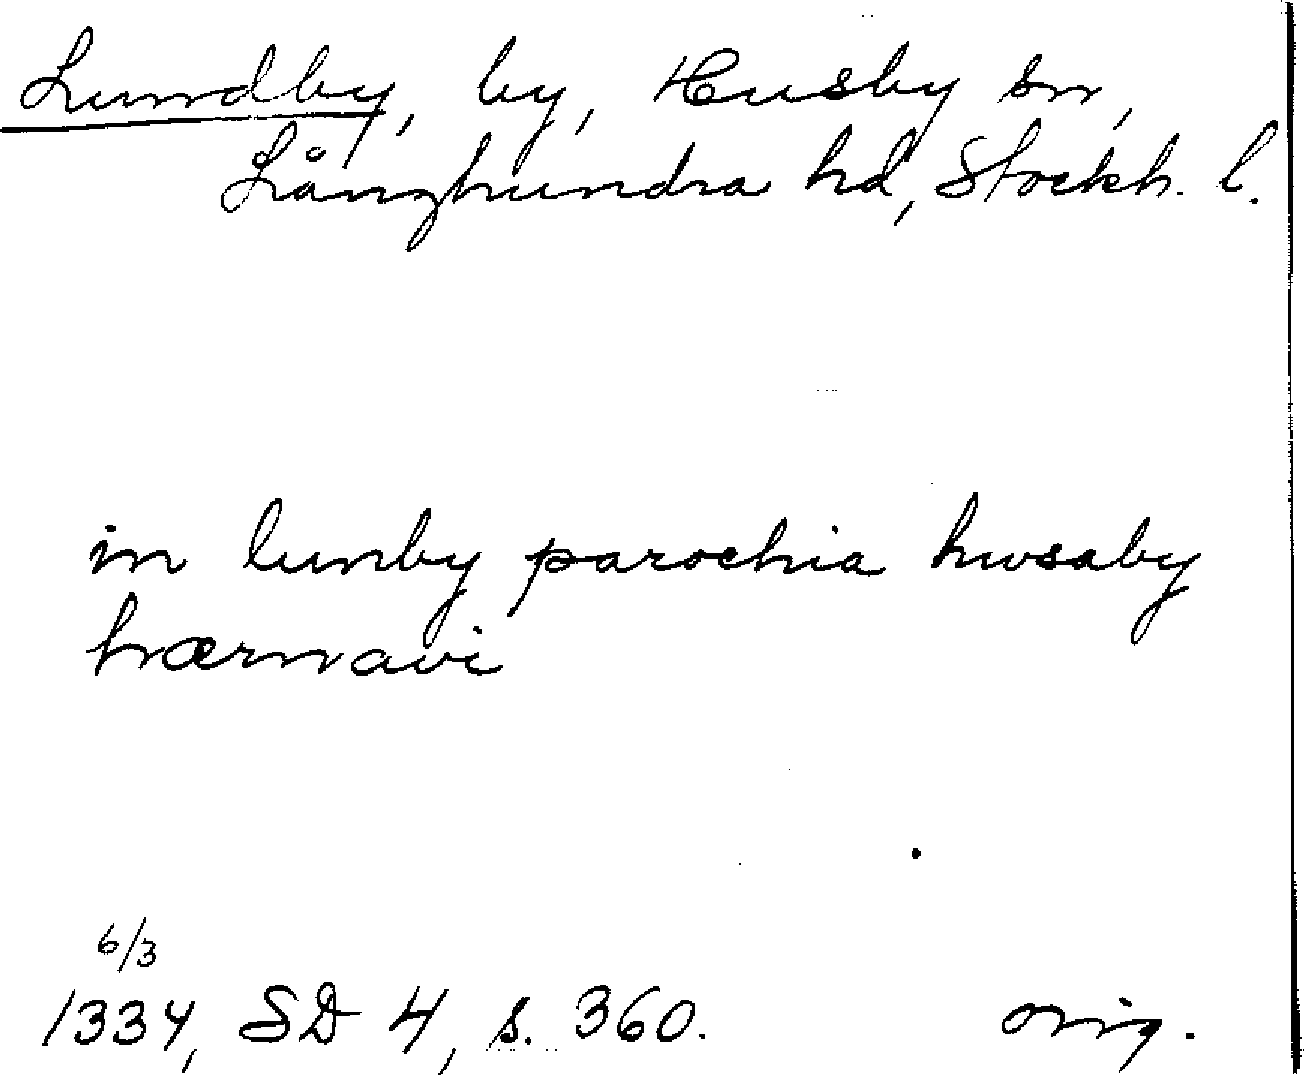 Lundby, by, Husby sn,
Långhundra hd, Stockh. l.
in lunby parochia hwsaby
hærnavi
6/3
1334, SD 4, s. 360. orig.